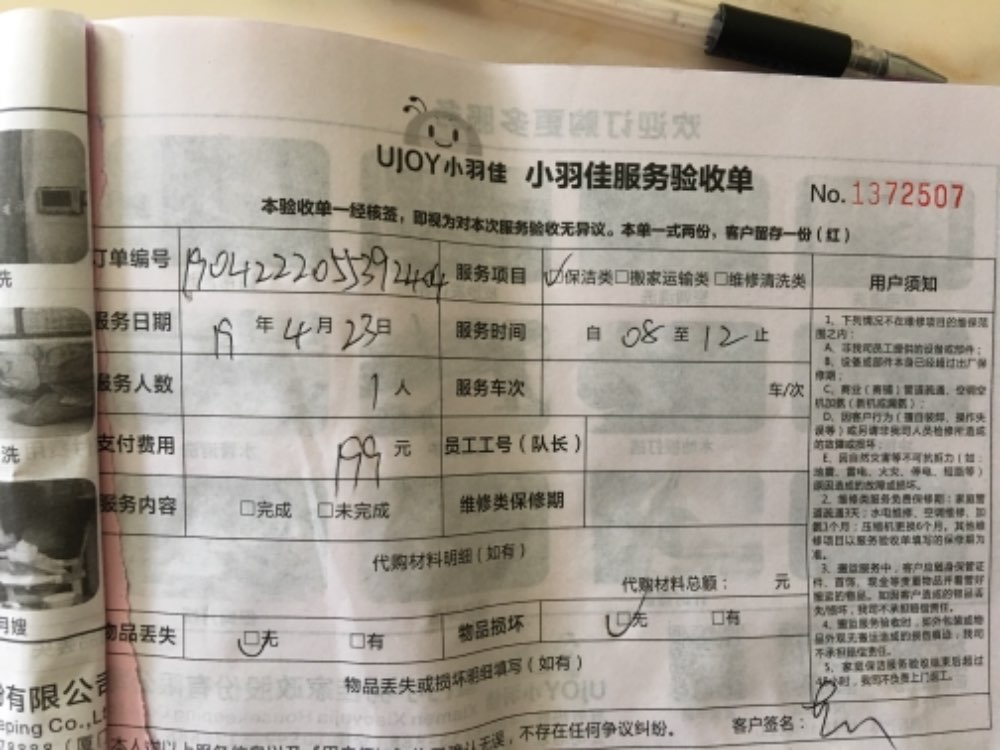 UJOY小羽佳 小羽佳服务验收单
No. 1372507
本验收单一经核签，即视为对本次服务验收无异议。本单一式两份，客户留存一份（红）
订单编号 服务项目 保洁类 □搬家运输类 □维修清洗类 用户须知
服务日期 19 年 4 月 23 日 服务时间 自 08 至 12 止
服务人数 1 人 服务车次 车/次
支付费用 199 元 员工工号（队长）
服务内容 □完成 □未完成 维修类保修期
代购材料明细（如有）
代购材料总额： 元
物品丢失 □无 □有 物品损坏 □无 □有
物品丢失或损坏明细填写（如有）
不存在任何争议纠纷。 客户签名：
1、下列情况不在维修项目的维保范
围之内：
A、非我司员工提供的设备或部件；
B、设备或部件本身已经超过出厂保
修期；
C、商业（商铺）管道疏通、空调空
机加氨（新机或漏氨）；
D、因客户行为（擅自装卸、操作失
误等）或另请非我司人员检修所造成
的故障或损坏；
E、因自然灾害等不可抗解力（如：
地震、雷电、火灾、停电、短路等）
原因造成的故障或损坏。
2、维修类服务免费保修期：家庭管
道疏通3天；水电维修、空调维修、加
氨1个月；压缩机更换6个月。其他维
修项目以服务验收单填写的保修期为
准。
3、搬运服务中，客户应随身保管证
件、首饰、现金等贵重物品并看管好
搬运的物品。如因客户造成的物品丢
失/损坏，我司不承担赔偿责任。
4、搬运服务验收时，如外包装或物
品外观无搬运造成的损毁痕迹，我司
不承担赔偿责任。
5、家庭保洁服务验收结束后超过
小时，我司不负责上门返工。
洗
洗
月嫂
有限公司
eping Co.,L